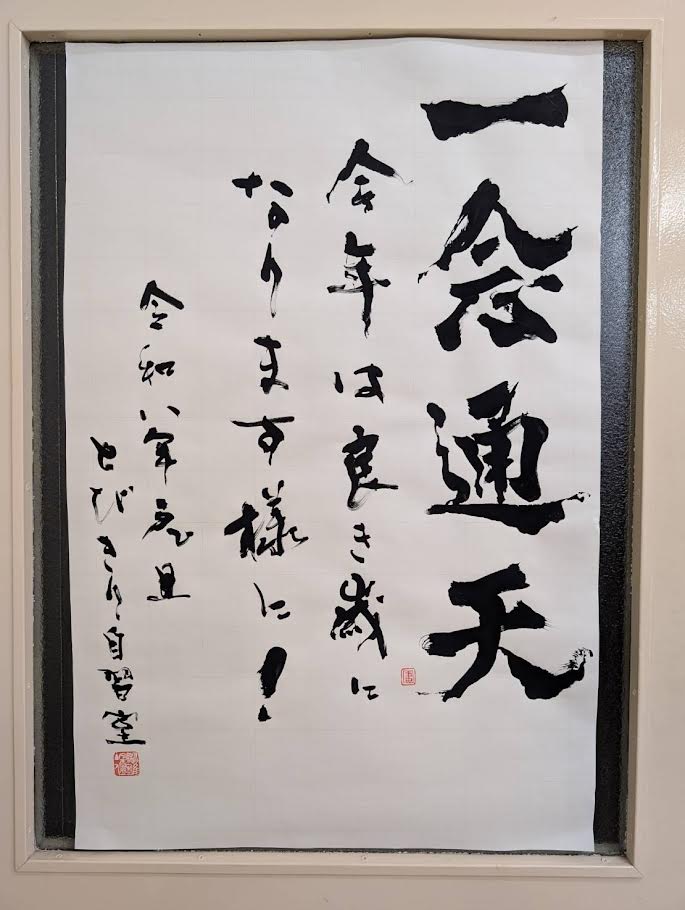 一念通天
今年は良き歳に
なります様に！
令和八年元旦
とびきり自習室